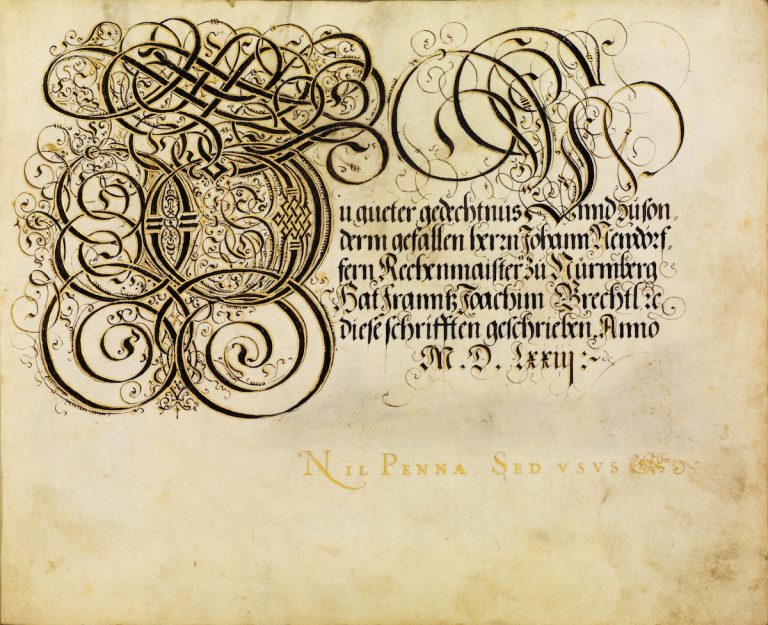 Zu gueter gedechtnus Vnnd zu son„
derm gefallen herrn Johann Neudorf„
fern Rechenmaister zu Nürmberg
Hat Franntz Joachim Brechtl ꝛc
diese schrifften geschrieben, Anno
M. D. Lxxiij :~
NIL PENNA. SED VSVS